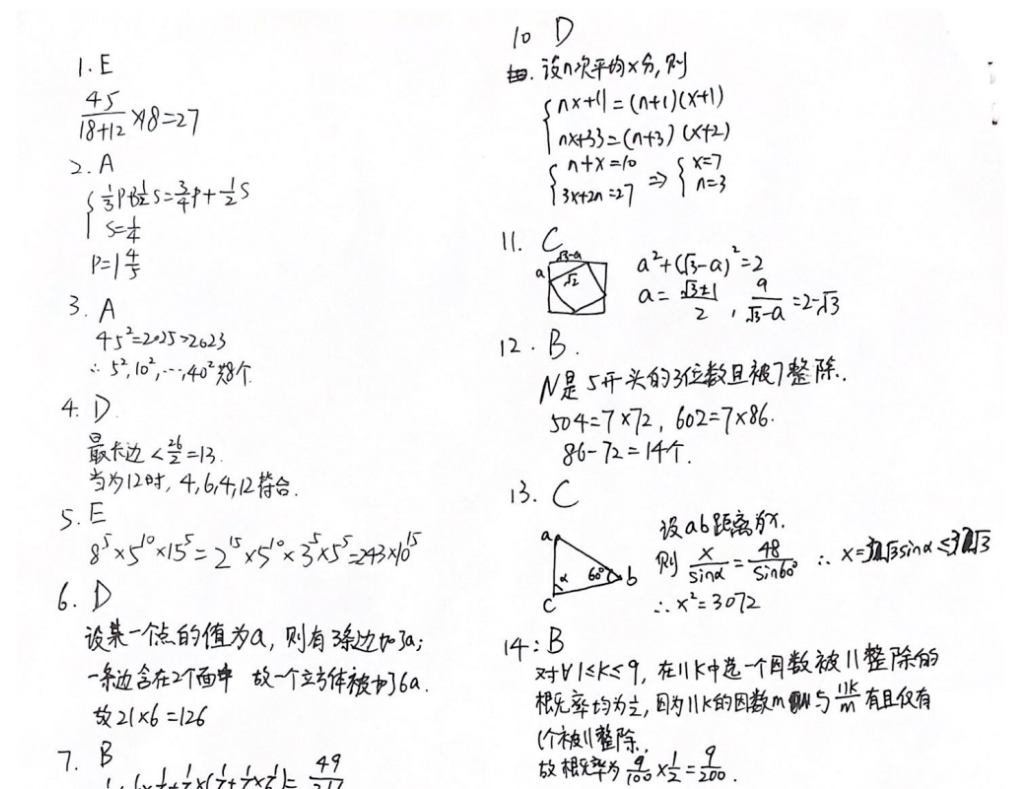 1. E
45/(18+12) ×18=27
2. A
{ 1/3 P+ 1/2 S = 3/4 P + 1/2 S
S=1/4
P=1 4/5
3. A
45²=2025>2023
∴ 5², 10², …, 40² 共8个.
4. D.
最长边 < 26/2 =13.
当为12时, 4, 6, 4, 12符合.
5. E
8⁵×5¹⁰×15⁵=2¹⁵×5¹⁰×3⁵×5⁵=243×10¹⁵
6. D
设某一个点的值为a, 则有3条边加了a;
一条边含在2个面中 故一个立方体被加了6a.
故21×6=126
7. B
49
10 D
设n次平均x分, 则
{ nx+11=(n+1)(x+1)
nx+33=(n+3)(x+2)
{ n+x=10
3x+2n=27 ⇒ { x=7
n=3
11. C
√3-a
a √2
a²+(√3-a)²=2
a= (√3±1)/2 , a/(√3-a) =2-√3
12. B.
N是5开头的3位数且被7整除.
504=7×72, 602=7×86.
86-72=14个.
13. C
设ab距离为x.
a α 60° b c
则 x/sinα = 48/sin60° ∴ x=32√3sinα≤32√3
∴ x²=3072
14: B
对于∀1≤K≤9, 在11K中选一个因数被11整除的
概率均为1/2, 因为11K的因数m与 11K/m 有且仅有
1个被11整除.
故概率为 9/100 × 1/2 = 9/200 .